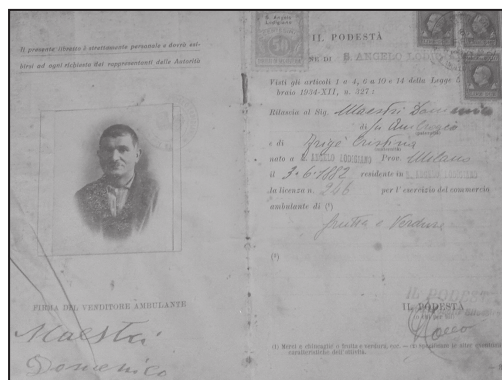 Il presente libretto è strettamente personale e dovrà esi-
birsi ad ogni richiesta dei rappresentanti delle Autorità
FIRMA DEL VENDITORE AMBULANTE
Maestri
Domenico
IL PODESTÀ
NE DI S. ANGELO LODI
Visti gli articoli 1 a 4, 6 a 10 e 14 della Legge 5
braio 1934-XII, n. 327;
Rilascia al Sig. Maestri Domenico
di fu Ambrogio
e di Brigé Cristina
nato a S. ANGELO LODIGIANO Prov. Milano
il 3-6-1882 residente in S. ANGELO LODIGIANO
la licenza n. 246 per l'esercizio del commercio
ambulante di (¹)
frutta e Verdure
(²)
IL PODESTÀ
(1) Merci a dettaglio o frutta e verdura, ecc.
caratteristiche dell'attività.